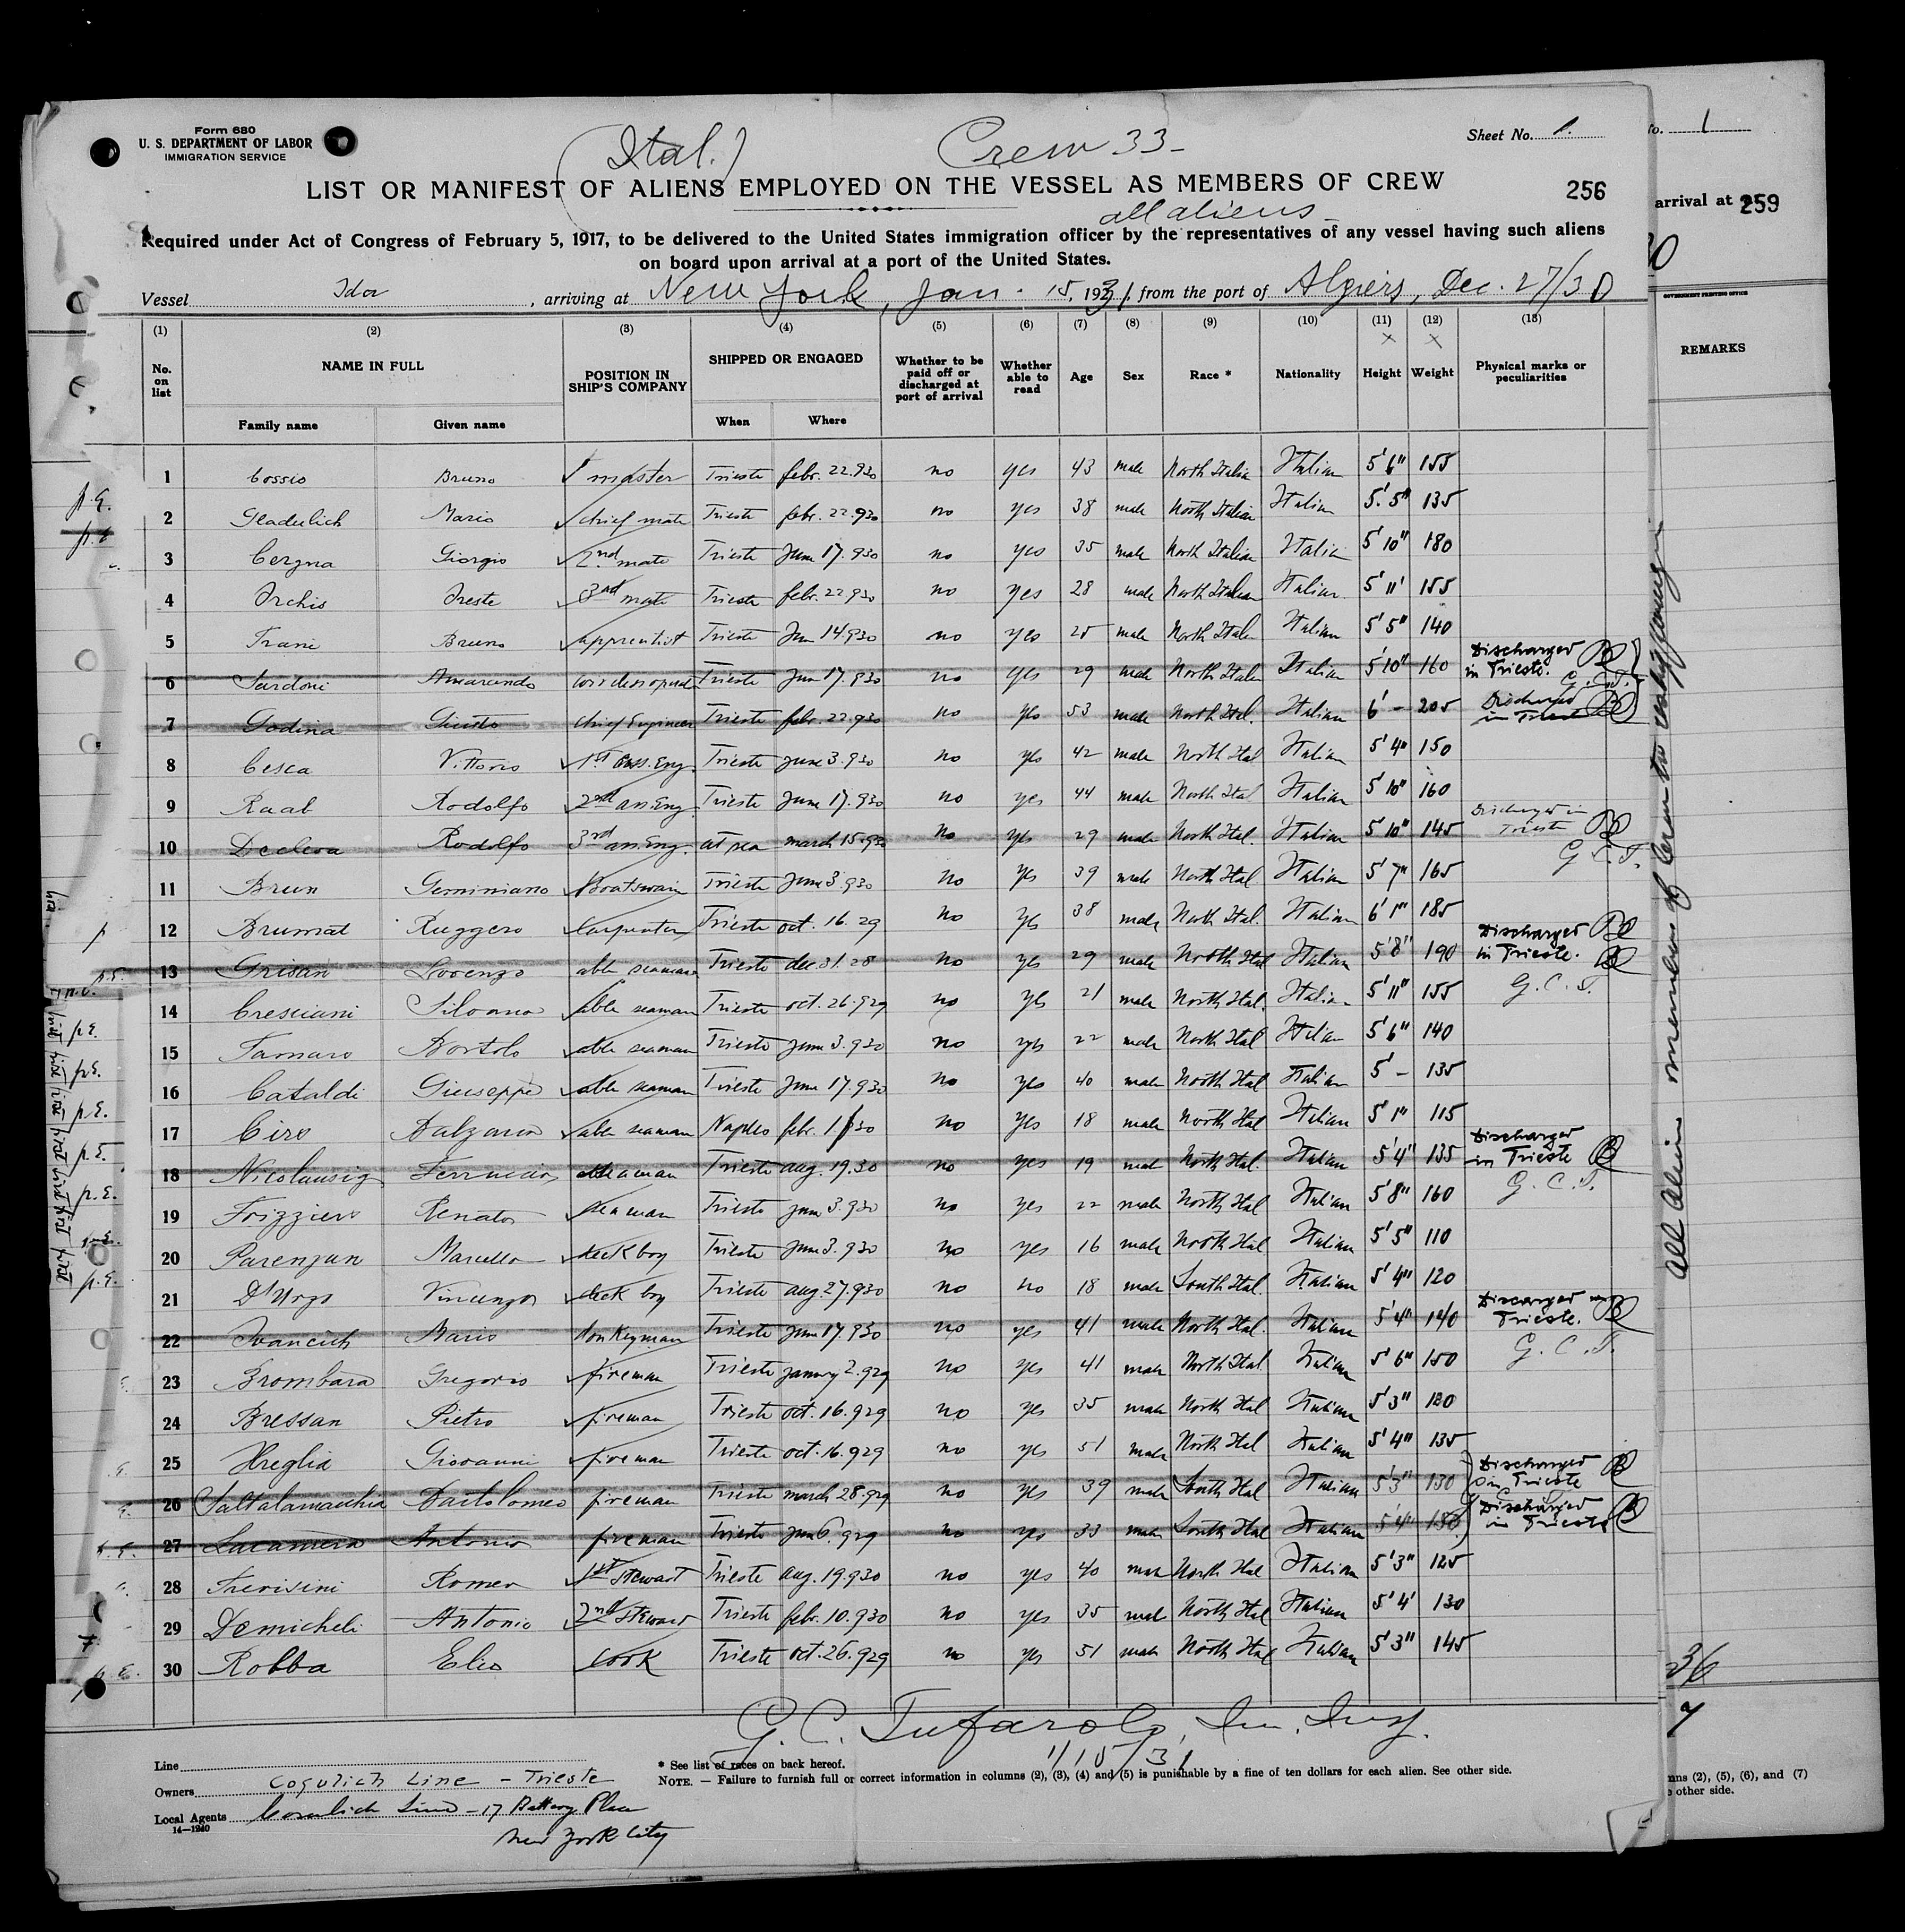 Form 680
U. S. DEPARTMENT OF LABOR
IMMIGRATION SERVICE
(Ital.)
Crew 33-
Sheet No. 1.
LIST OR MANIFEST OF ALIENS EMPLOYED ON THE VESSEL AS MEMBERS OF CREW
256
all aliens
Required under Act of Congress of February 5, 1917, to be delivered to the United States immigration officer by the representatives of any vessel having such aliens
on board upon arrival at a port of the United States.
Vessel Ida, arriving at New York, Jan. 15, 1931, from the port of Algiers, Dec. 27/30
(1) (2) (3) (4) (5) (6) (7) (8) (9) (10) (11) (12) (13)
No. on list NAME IN FULL POSITION IN SHIP'S COMPANY SHIPPED OR ENGAGED Whether to be paid off or discharged at port of arrival Whether able to read Age Sex Race * Nationality Height Weight Physical marks or peculiarities
Family name Given name When Where
1 Cossio Bruno master Trieste febr. 22.930 no yes 43 male North Italian Italian 5'6" 155
2 Gladulich Mario chief mate Trieste febr. 22.930 no yes 38 male North Italian Italian 5'.5" 135
3 Cergna Giorgio 2nd mate Trieste June 17.930 no yes 35 male North Italian Italian 5'10" 180
4 Oreste 3rd mate Trieste febr. 22.930 no yes 28 male North Italian Italian 5'11' 155
5 Trani Bruno Trieste Jun 14.930 no yes 25 male North Italian Italian 5'5" 140
6 Sardoni Trieste Jun 17.930 no yes 29 male North Italian Italian 5'10" 160 Discharged in Trieste. G.C.T.
7 Godina Giusto chief Engineer Trieste febr. 22.930 no yes 53 male North Ital. Italian 6' - 205 Discharged in Trieste
8 Cesca Vittorio 1st ass. Eng. Trieste June 3.930 no yes 42 male North Ital Italian 5'4" 150
9 Raab Rodolfo 2nd ass Eng. Trieste June 17.930 no yes 44 male North Ital Italian 5'10" 160
10 Decleva Rodolfo 3rd ass Eng. at sea march 15.930 no yes 29 male North Ital. Italian 5'10" 145 Discharged in Trieste G.C.T.
11 Brun Geminiano Boatswain Trieste June 3.930 no yes 39 male North Ital Italian 5'7" 165
12 Brumat Ruggero Carpenter Trieste oct. 16.29 no yes 38 male North Ital. Italian 6'1" 185
13 Grisan Lorenzo able seaman Trieste dec. 31.28 no yes 29 male North Ital Italian 5'8" 190 Discharged in Trieste. G.C.T.
14 Cresciani Silvano able seaman Trieste oct. 26.929 no yes 21 male North Ital. Italian 5'11" 155
15 Tamaro Bortolo able seaman Trieste June 3.930 no yes 22 male North Ital Italian 5'6" 140
16 Cataldi Giuseppe able seaman Trieste June 17.930 no yes 40 male North Ital Italian 5' - 135
17 Ciro able seaman Naples febr. no yes 18 male North Ital Italian 5'1" 115
18 Nicolausig Ferruccio seaman Trieste aug. 19.30 no yes 19 male North Ital. Italian 5'4" 135 Discharged in Trieste G.C.T.
19 Frizziero Renato seaman Trieste June 3.930 no yes 22 male North Ital Italian 5'8" 160
20 Parenzan Marcello deck boy Trieste June 3.930 no yes 16 male North Ital Italian 5'5" 110
21 D'Urzo Vincenzo deck boy Trieste aug. 27.930 no no 18 male South Ital. Italian 5'4" 120
22 Ivancich Mario donkeyman Trieste June 17.930 no yes 41 male North Ital. Italian 5'4" 140 Discarged in Trieste. G.C.T.
23 Brombara Gregorio fireman Trieste january 2.929 no yes 41 male North Ital. Italian 5'6" 150
24 Bressan Pietro fireman Trieste oct. 16.929 no yes 35 male North Ital Italian 5'3"
25 Hreglia Giovanni fireman Trieste oct. 16.929 no yes 51 male North Ital Italian 5'4" 135
26 Saltalamacchia Bartolomeo fireman Trieste march 28.929 no yes 39 male South Ital Italian 5'3" 130 Discharged in Trieste
27 Lacamera Antonio fireman Trieste 6.929 no yes 33 male South Ital Italian 5'4" Discharged in Trieste
28 Trevisini Romeo 1st Stewart Trieste aug. 19.930 no yes 40 male North Ital Italian 5'3" 125
29 Demicheli Antonio 2nd Steward Trieste febr. 10.930 no yes 35 male North Ital Italian 5'4' 130
30 Robba Elio cook Trieste oct. 26.929 no yes 51 male North Ital Italian 5'3" 145
G. C. Tufarolo, Im. Insp.
1/15/31
Line
Owners Cosulich Line - Trieste
Local Agents Cosulich Line - 17 Battery Place
New York City
14-1240
* See list of races on back hereof.
NOTE. — Failure to furnish full or correct information in columns (2), (3), (4) and (5) is punishable by a fine of ten dollars for each alien. See other side.
All Alien members of Crew to
1
arrival at
259
GOVERNMENT PRINTING OFFICE
REMARKS
36
mns (2), (5), (6), and (7)
other side.